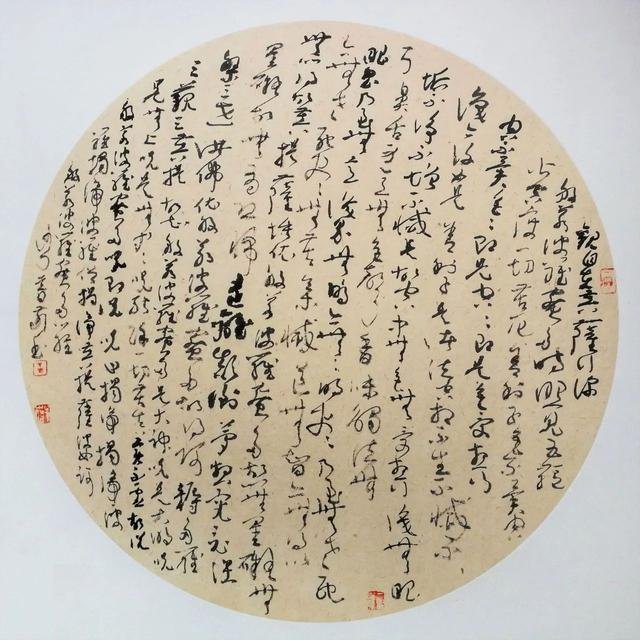 觀自在菩薩行深
般若波羅蜜多時照見五蘊
皆空度一切苦厄舍利子色不異空
空不異色色即是空空即是色受想行
識亦復如是舍利子是諸法空相不生不滅不
垢不淨不增不減是故空中無色無受想行識無眼
耳鼻舌身意無色聲香味觸法無
眼界乃至無意識界無無明亦無無明盡乃至無老死
亦無老死盡無苦集滅道無智亦無得以
無所得故菩提薩埵依般若波羅蜜多故心無罣礙無
罣礙故無有恐怖遠離顛倒夢想究竟涅
槃三世諸佛依般若波羅蜜多故得阿耨多羅
三藐三菩提故知般若波羅蜜多是大神咒是大明咒
是無上咒是無等等咒能除一切苦真實不虛故說
般若波羅蜜多咒即說咒曰揭諦揭諦波
羅揭諦波羅僧揭諦菩提薩婆訶
般若波羅蜜多心經